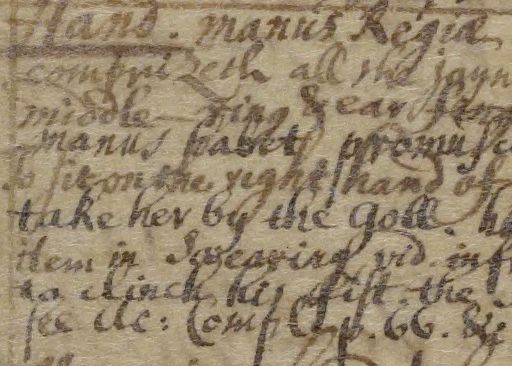 Hand. manus Regia
comprizeth all the joyn
middle ring & ear
manus habet promusc
to sit on the right hand of
take her by the Goll. h
item in Swearing vid. inf
to clinch his fist. the
see &c: Comp p. 66. &